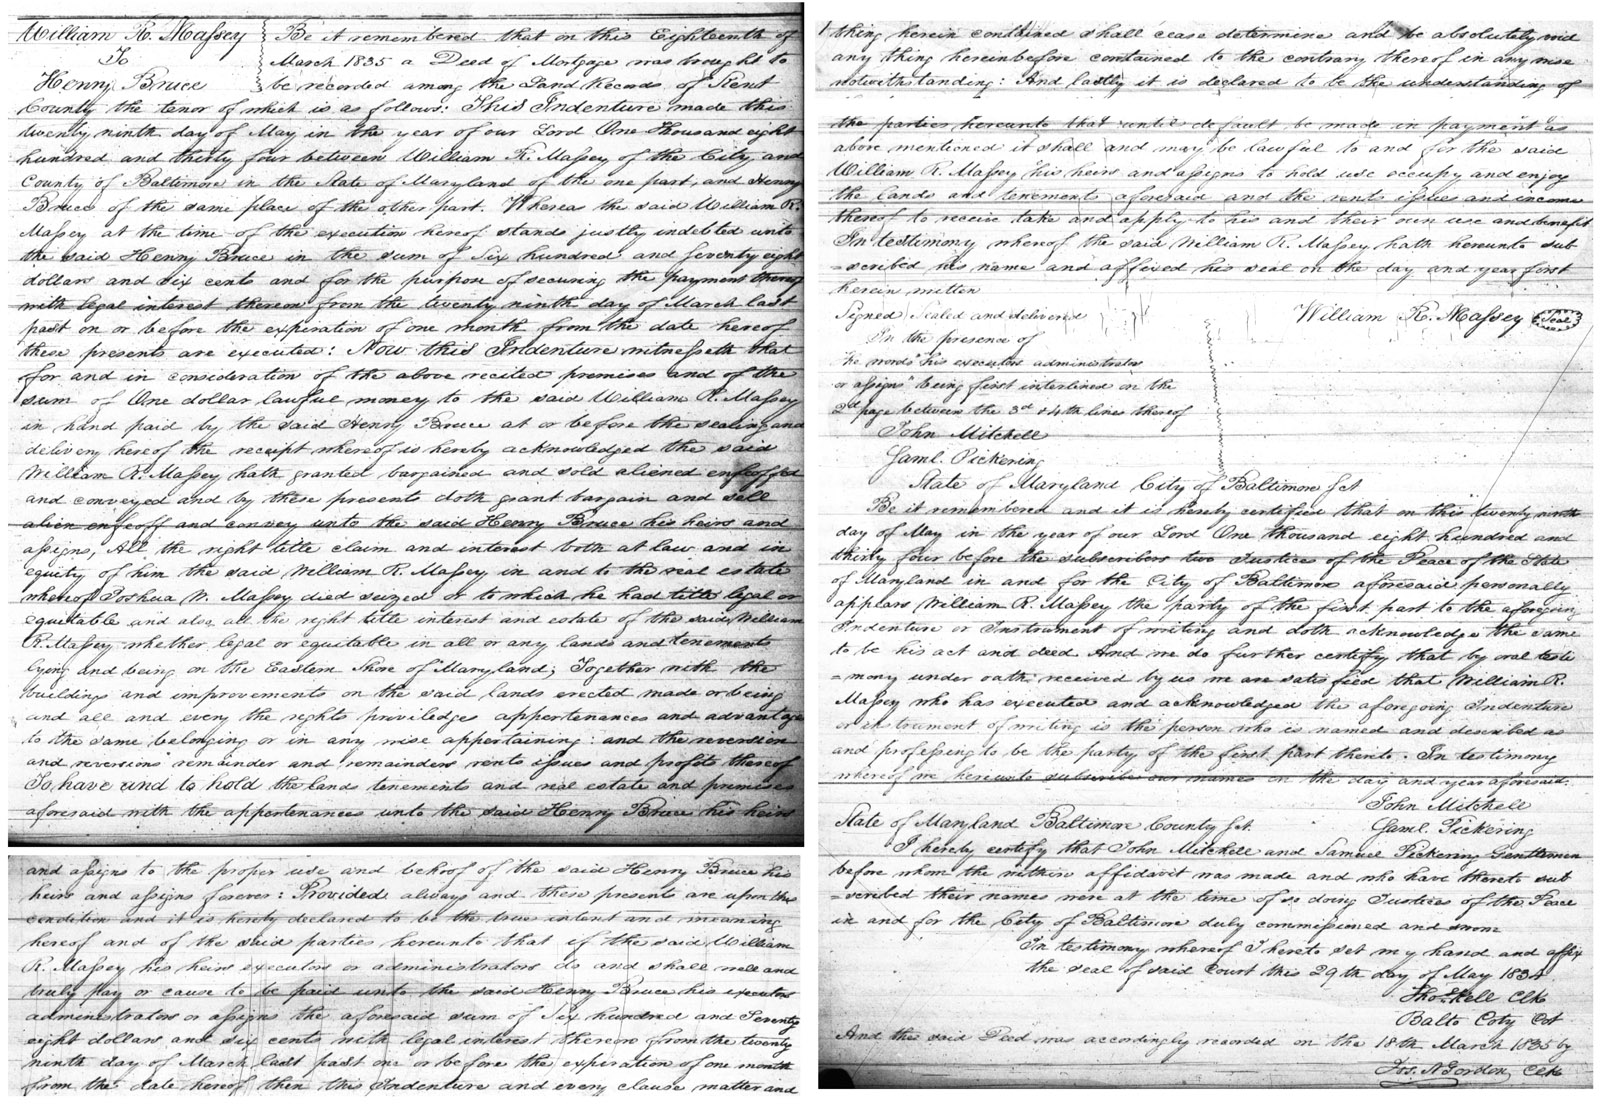 William R. Massey
To
Henry Bruce
Be it remembered that on this Eighteenth of
March 1835 a Deed of Mortgage was brought to
be recorded among the Land Records of Kent
County the tenor of which is as follows: This Indenture made this
twenty ninth day of May in the year of our Lord One Thousand eight
hundred and thirty four between William R. Massey of the City and
County of Baltimore in the State of Maryland of the one part, and Henry
Bruce of the same place of the other part. Whereas the said William R.
Massey at the time of the execution hereof stands justly indebted unto
the said Henry Bruce in the sum of Six hundred and seventy eight
dollars and six cents and for the purpose of securing the payment thereof
with legal interest thereon from the twenty ninth day of March last
past on or before the expiration of one month from the date hereof
these presents are executed: Now this Indenture witnesseth that
for and in consideration of the above recited premises and of the
sum of One dollar lawful money to the said William R. Massey
in hand paid by the said Henry Bruce at or before the sealing and
delivery hereof the receipt whereof is hereby acknowledged the said
William R. Massey hath granted bargained and sold aliened enfeoffed
and conveyed and by these presents doth grant bargain and sell
alien enfeoff and convey unto the said Henry Bruce his heirs and
assigns, All the right title claim and interest both at law and in
equity of him the said William R. Massey in and to the real estate
whereof Joshua W. Massey died seized or to which he had title legal or
equitable and also all the right title interest and estate of the said William
R. Massey whether legal or equitable in all or any lands and tenements
lying and being on the Eastern Shore of Maryland; Together with the
buildings and improvements on the said lands erected made or being
and all and every the rights priviledge appertenances and advantage
to the same belonging or in any wise appertaining: and the reversion
and reversions remainder and remainders rents issues and profits thereof
To have and to hold the lands tenements and real estate and premises
aforesaid with the appertenances unto the said Henry Bruce his heirs
and assigns to the proper use and behoof of the said Henry Bruce his
heirs and assigns forever: Provided always and these presents are upon this
condition and it is hereby declared to be the true intent and meaning
hereof and of the said parties hereunto that if the said William
R. Massey his heirs executors or administrators do and shall well and
truly pay or cause to be paid unto the said Henry Bruce his executors
administrators or assigns the aforesaid sum of Six hundred and Seventy
eight dollars and six cents with legal interest thereon from the twenty
ninth day of March last past on or before the expiration of one month
from the date hereof then this Indenture and every clause matter and
thing herein contained shall cease determine and be absolutely void
any thing hereinbefore contained to the contrary thereof in any wise
notwithstanding: And lastly it is declared to be the understanding of
the parties hereunto that until default be made in payment as
above mentioned it shall and may be lawful to and for the said
William R. Massey his heirs and assigns to hold use occupy and enjoy
the lands and tenement aforesaid and the rents issues and income
thereof to receive take and apply to his and their own use and benefit
In testimony whereof the said William R. Massey hath hereunto sub
=scribed his name and affixed his seal on the day and year first
herein written
Signed Sealed and delivered
William R. Massey Seal
In the presence of
the words "his executors administrators
or assigns" being first interlined on the
2d page between the 3rd & 4th lines thereof
John Mitchell
Saml. Pickering
State of Maryland City of Baltimore Sct.
Be it remembered and it is hereby certified that on this twenty ninth
day of May in the year of our Lord One thousand eight hundred and
thirty four before the subscribers two Justices of the Peace of the State
of Maryland in and for the City of Baltimore aforesaid personally
appears William R. Massey the party of the first part to the aforegoing
Indenture or Instrument of writing and doth acknowledge the same
to be his act and deed. And we do further certify that by oral testi
=mony under oath received by us we are satisfied that William R.
Massey who has executed and acknowledged the aforegoing Indenture
or instrument of writing is the person who is named and described as
and professing to be the party of the first part thereto. In testimony
whereof we hereunto subscribe our names on the day and year aforesaid.
John Mitchell
State of Maryland Baltimore County Sct.
Saml. Pickering
I hereby certify that John Mitchell and Samuel Pickering Gentlemen
before whom the within affidavit was made and who have thereto sub
=scribed their names were at the time of so doing Justices of the Peace
in and for the City of Baltimore duly commissioned and sworn
In testimony whereof I hereto set my hand and affix
the seal of said Court this 29th day of May 1834
Thos Kell Clk
Balto Coty Cot
And the said Deed was accordingly recorded on the 18th March 1835 by
Jos. N Gordon Clk